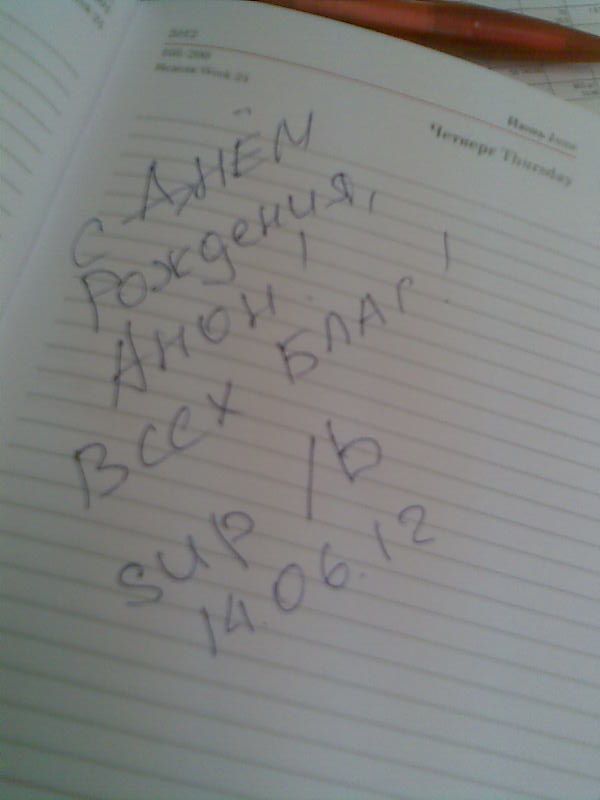 2012
166-200
Неделя Week 24
Июнь June
Четверг Thursday
С ДНЁМ
Рождения,
Анон!
Всех БЛАГ!
sup /b
14.06.12